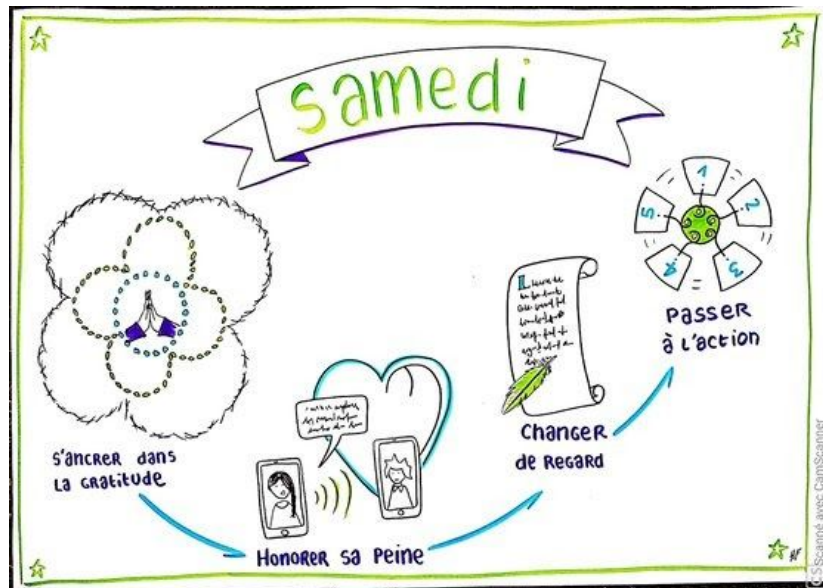 samedi
s'ancrer dans
la gratitude
Honorer sa peine
Changer
de regard
Passer
à l'action
1
2
3
4
5
CS Scanné avec CamScanner